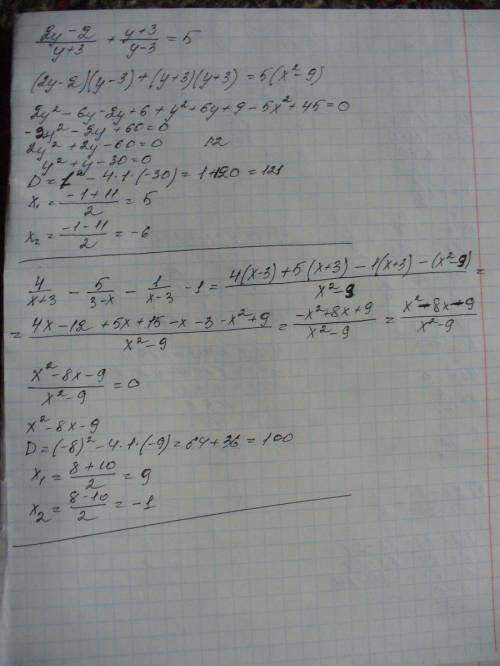 (2y-2)/(y+3) + (y+3)/(y-3) = 5
(2y-2)(y-3)+(y+3)(y+3) = 5(x²-9)
2y²-6y-2y+6+y²+6y+9-5x²+45=0
-2y²-2y+60=0
2y²+2y-60=0 :2
y²+y-30=0
D=1²-4·1·(-30)=1+120=121
x₁=(-1+11)/2=5
x₂=(-1-11)/2=-6
4/(x+3) - 5/(3-x) - 1/(x-3) -1= (4(x-3)+5(x+3)-1(x+3)-(x²-9))/(x²-9) =
= (4x-12+5x+15-x-3-x²+9)/(x²-9) = (-x²+8x+9)/(x²-9) = (x²-8x-9)/(x²-9)
(x²-8x-9)/(x²-9) =0
x²-8x-9
D=(-8)²-4·1·(-9)=64+36=100
x₁=(8+10)/2=9
x₂=(8-10)/2=-1